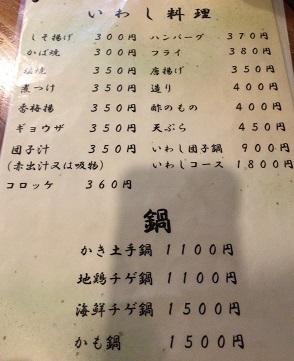 いわし料理
しそ揚げ 300円 ハンバーグ 370円
かば焼 300円 フライ 380円
塩焼 350円 唐揚げ 350円
煮つけ 350円 造り 400円
香梅揚 350円 酢のもの 400円
ギョウザ 350円 天ぷら 450円
団子汁 350円 いわし団子鍋 900円
(赤出汁又は吸物) いわしコース 1800円
コロッケ 360円
鍋
かき土手鍋 1100円
地鶏チゲ鍋 1100円
海鮮チゲ鍋 1500円
かも鍋 1500円